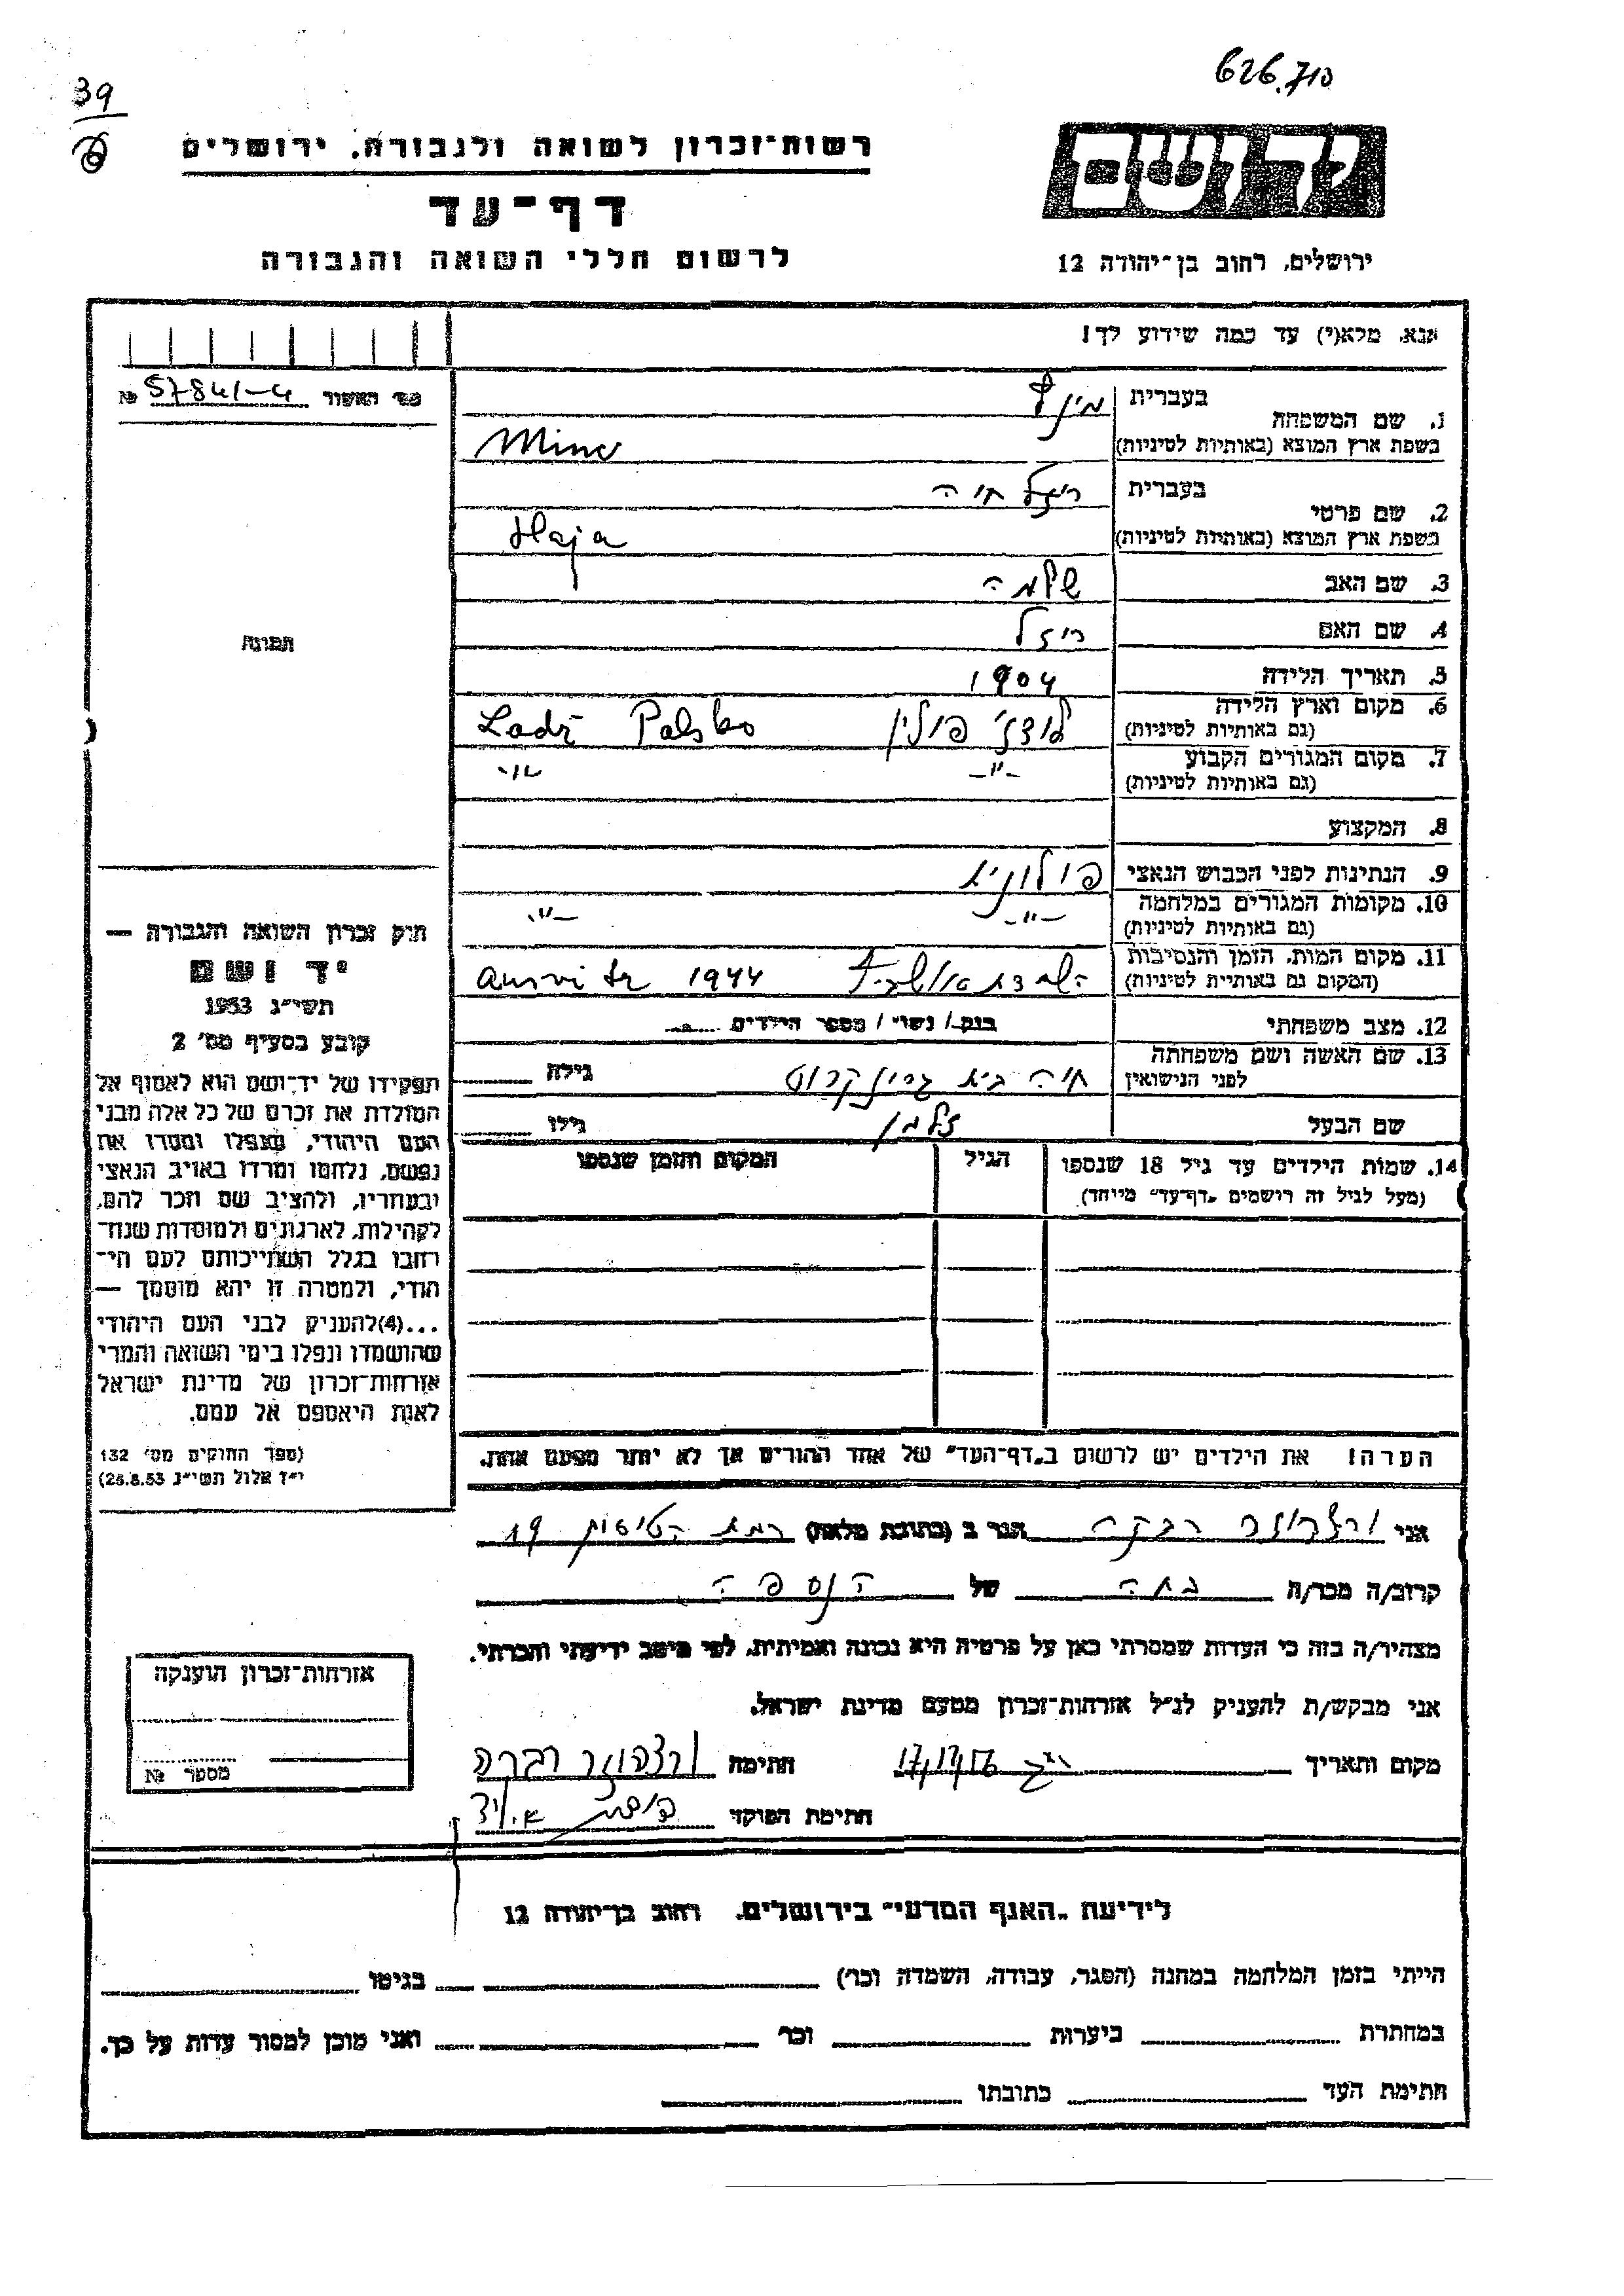 626.710
39
רשות־זכרון לשואה ולגבורה, ירושלים
יד ושם
דף־עד
לרשום חללי השואה והגבורה
ירושלים, רחוב בן־יהודה 12
אנא, מלא(י) עד כמה שידוע לך!
מס׳ האשור 57841-4 №
בעברית
1. שם המשפחה
מינץ
בשפת ארץ המוצא (באותיות לטיניות) Minc
בעברית
2. שם פרטי
חיה
בשפת ארץ המוצא (באותיות לטיניות) Haja
3. שם האב שלמה
4. שם האם רייזל
תמונה
5. תאריך הלידה 1904
6. מקום וארץ הלידה
(גם באותיות לטיניות) לודז׳ פולין Polsko Lodź
7. מקום המגורים הקבוע
(גם באותיות לטיניות) -"- -"-
8. המקצוע
9. הנתינות לפני הכבוש הנאצי פולונית
10. מקומות המגורים במלחמה
(גם באותיות לטיניות) -"- -"-
11. מקום המות, הזמן והנסיבות
(המקום גם באותיות לטיניות) 1944
12. מצב משפחתי רווק / נשוי / מספר הילדים
13. שם האשה ושם משפחתה
לפני הנישואין חיה גילה
שם הבעל זלמן גילו
14. שמות הילדים עד גיל 18 שנספו
(מעל לגיל זה רושמים „דף־עד״ מיוחד)
הגיל
המקום והזמן שנספו
הערה! את הילדים יש לרשום ב„דף־העד״ של אחד ההורים אך לא יותר מפעם אחת.
חוק זכרון השואה והגבורה —
יד ושם
תשי״ג 1953
קובע בסעיף מס׳ 2
תפקידו של יד־ושם הוא לאסוף אל
המולדת את זכרם של כל אלה מבני
העם היהודי, שנפלו ומסרו את
נפשם, נלחמו ומרדו באויב הנאצי
ובעוזריו, ולהציב שם וזכר להם,
לקהילות, לארגונים ולמוסדות שנח־
רבו בגלל השתייכותם לעם הי־
הודי, ולמטרה זו יהא מוסמך —
...(4)להעניק לבני העם היהודי
שהושמדו ונפלו בימי השואה והמרי
אזרחות־זכרון של מדינת ישראל
לאות היאספם אל עמם.
(ספר החוקים מס׳ 132
י״ז אלול תשי״ג 28.8.53)
אני רבקה הגר ב (כתובת מלאה) רמת 19
קרוב/ה מכר/ה של הנספה
מצהיר/ה בזה כי העדות שמסרתי כאן על פרטיה היא נכונה ואמיתית, לפי מיטב ידיעתי והכרתי.
אני מבקש/ת להעניק לנ״ל אזרחות־זכרון מטעם מדינת ישראל.
מקום ותאריך 17/12/56 חתימה
חתימת הפוקד
אזרחות־זכרון הוענקה
מספר №
לידיעת „האגף המדעי״ בירושלים, רחוב בן־יהודה 12
הייתי בזמן המלחמה במחנה (הסגר, עבודה, השמדה וכר׳) בגיטו
במחתרת ביערות וכר׳ ואני מוכן למסור עדות על כך.
חתימת העד כתובתו